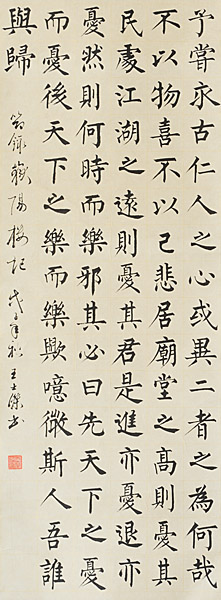 予嘗求古人之心或異二者之為何哉
不以物喜不以己悲居廟堂之高則憂其
民處江湖之遠則憂其君是進亦憂退亦
憂然則何時而樂邪其必曰先天下之憂
而憂後天下之樂而樂歟噫微斯人吾誰
與歸
節錄嶽陽樓記 戊子年秋 王士傑書